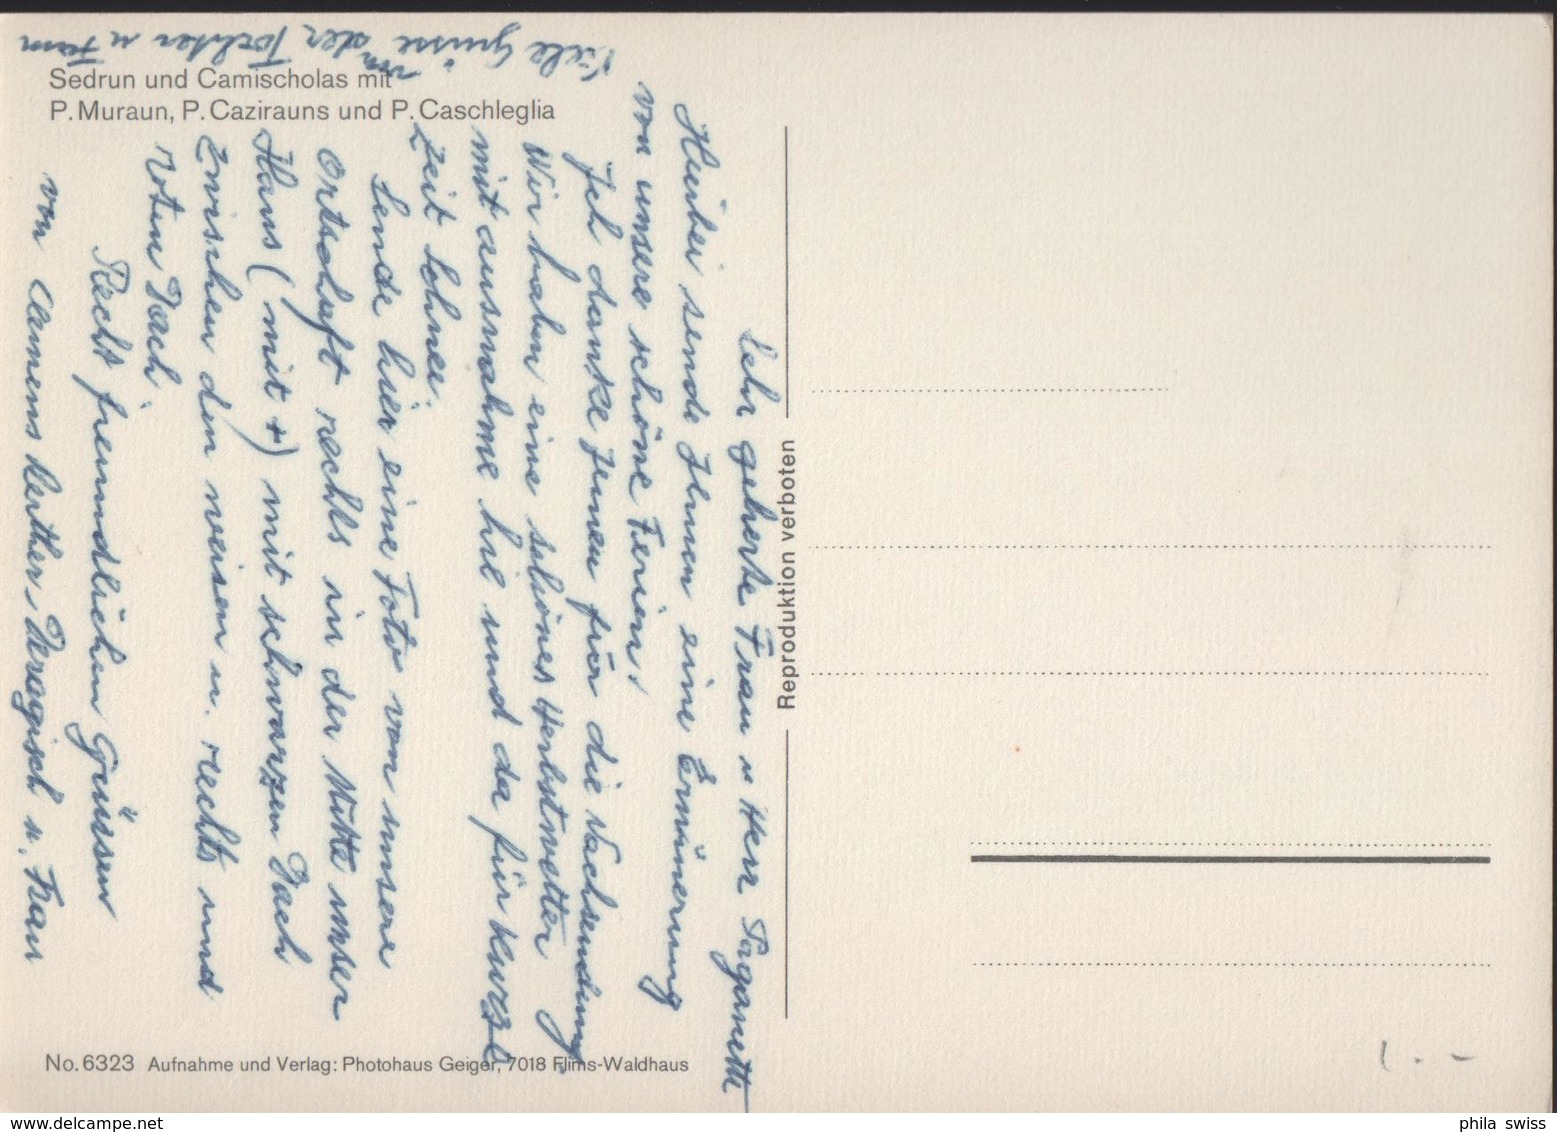 Sedrun und Camischolas mit
P. Muraun, P. Cazirauns und P. Caschleglia
Sehr geherte Frau u Herr Paganetti
Hierbei sende Ihnen eine Ernünerung
von unsere schöne Ferien.
Ich danke Jhnen für die Nachsendung,
Wir haben eine schönes Herbstwetter
mit ausnahme hie und da für kurze
Zeit Schnee.
Sende hier eine Foto vom unsere
Ortschaft rechts in der Mitte unser
Haus (mit +) mit schwarzen Dach
Zwischen den weisen u. rechts und
roten Dach.
Recht freundlichen Grüssen
von Clemens Berther, u. Frau
Viele Grüsse von der Tochter u Fam
Reproduktion verboten
No. 6323 Aufnahme und Verlag: Photohaus Geiger, 7018 Flims-Waldhaus
phila swiss